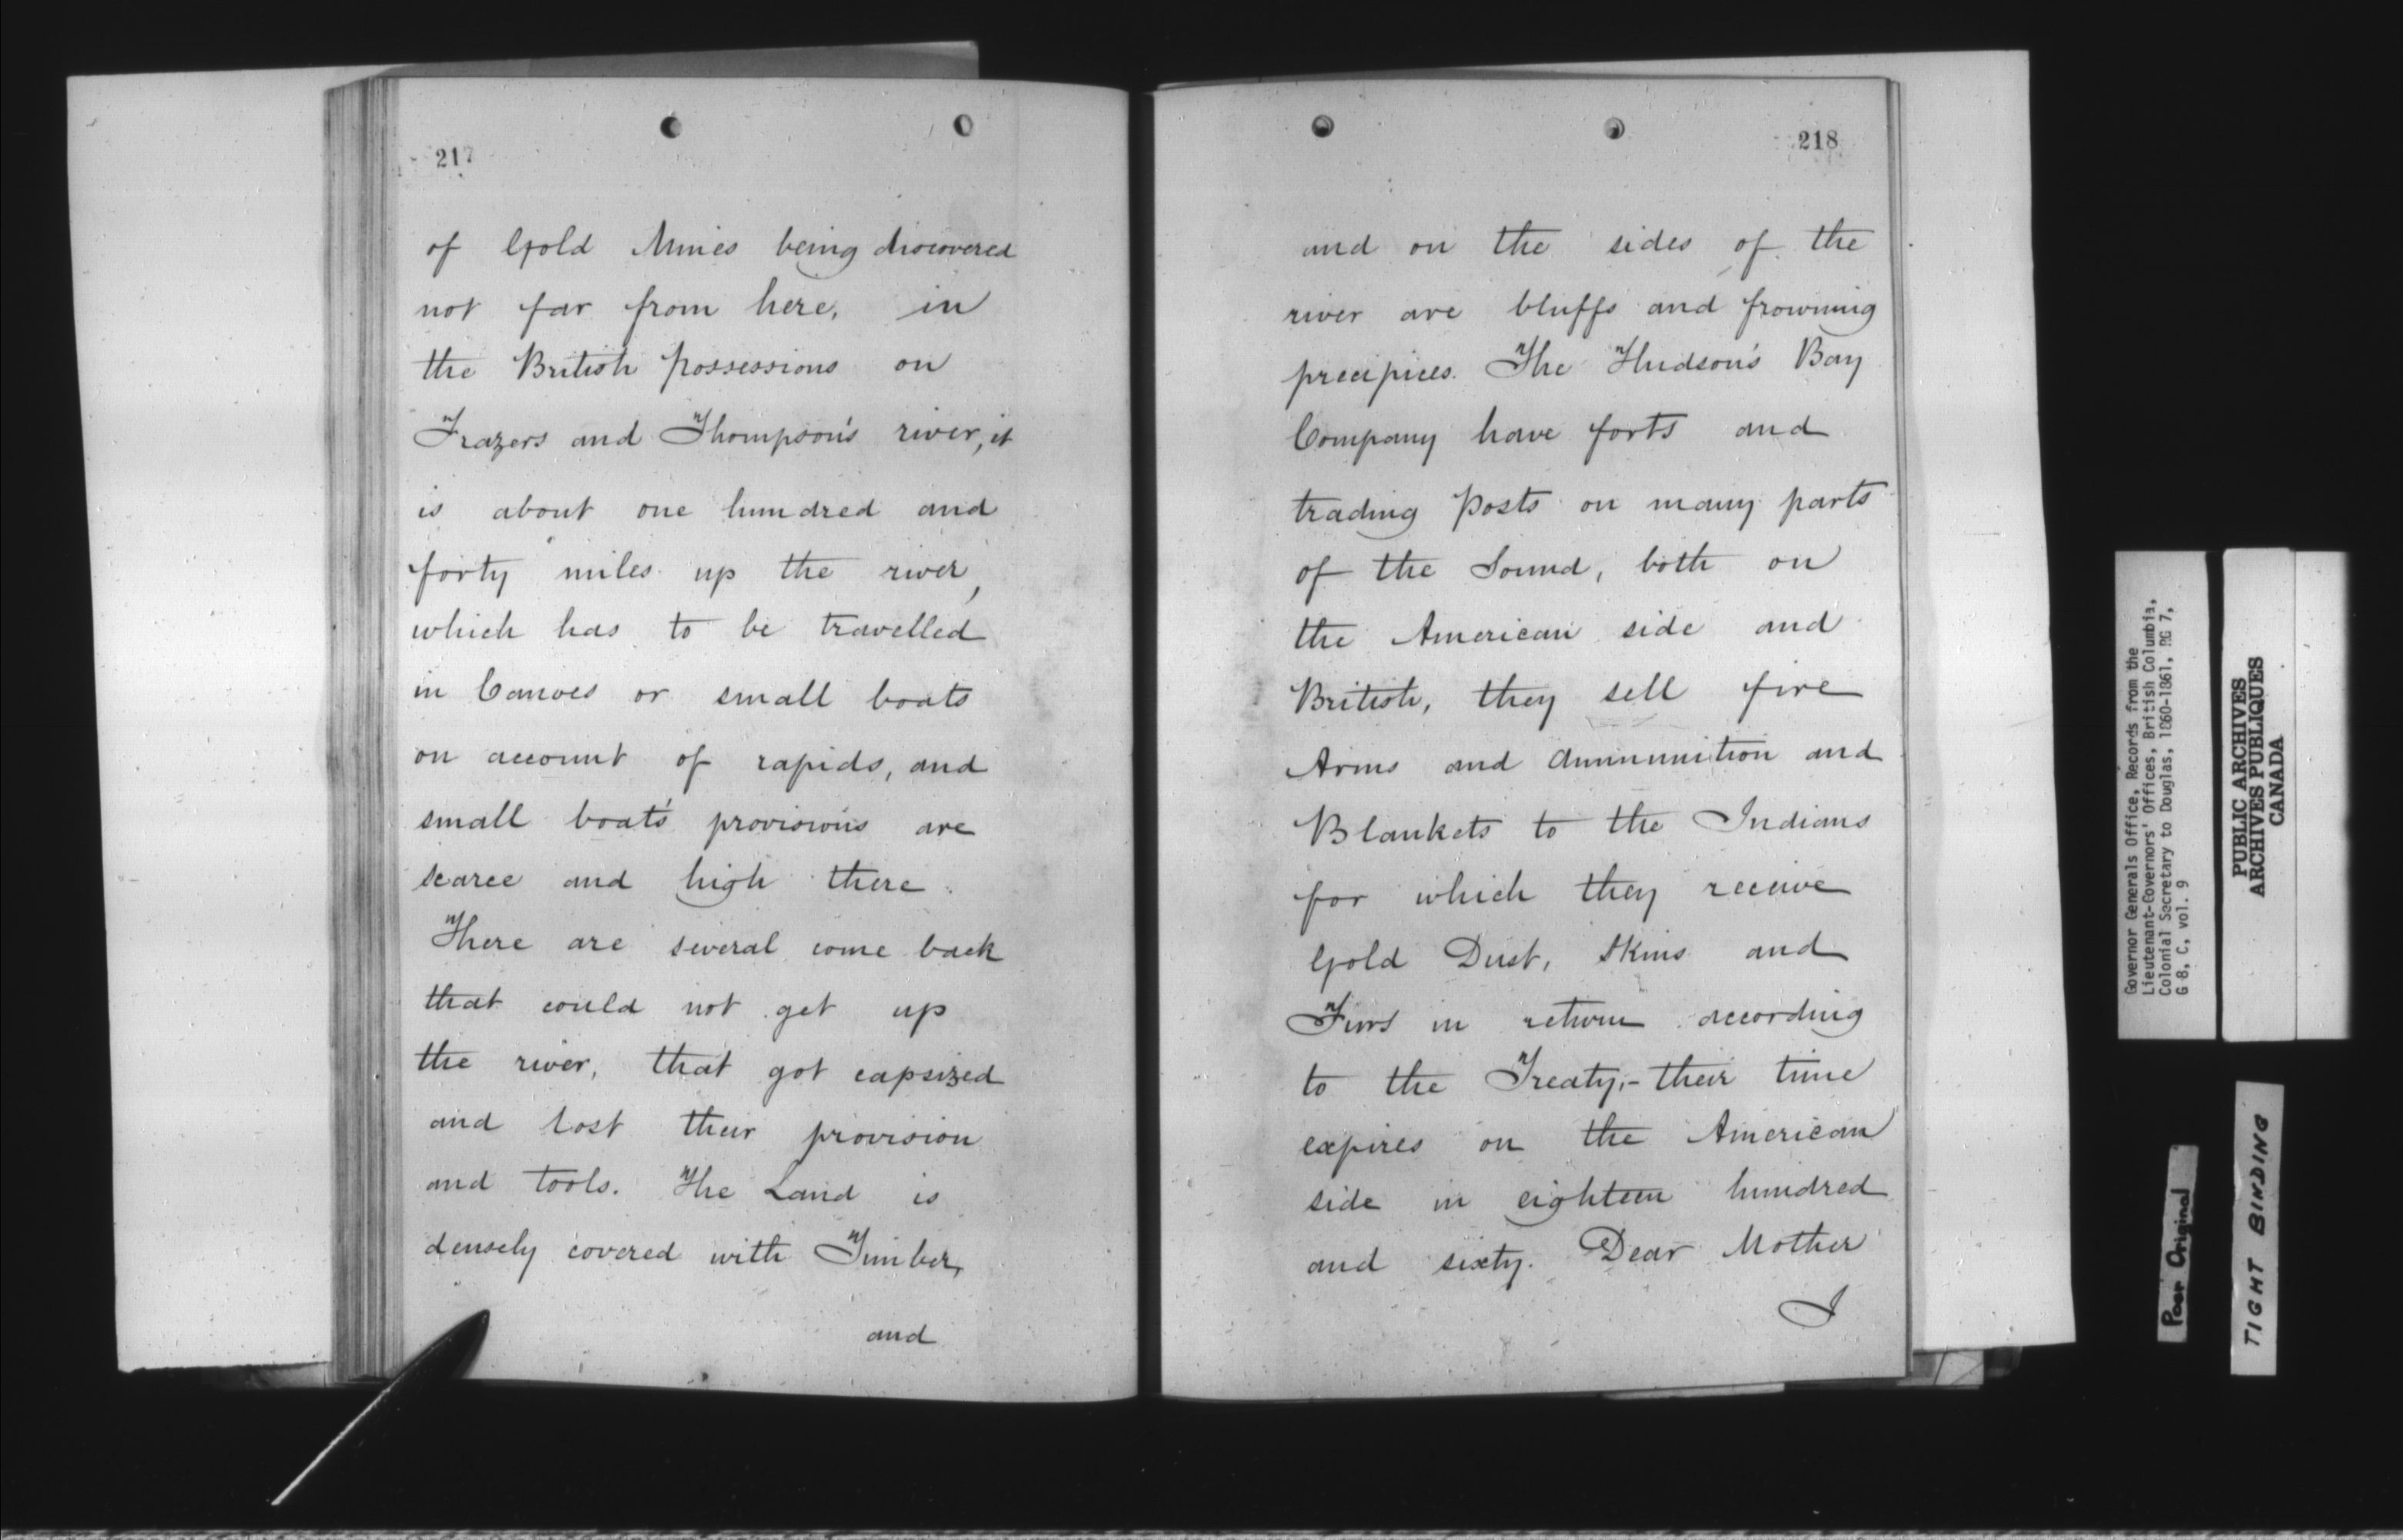 217
of Gold Mines being discovered
not far from here, in
the British possessions on
Frazers and Thompson's river, it
is about one hundred and
forty miles up the river,
which has to be travelled
in Canoes or small boats
on account of rapids, and
small boats provisions are
scarce and high there.
There are several come back
that could not get up
the river, that got capsized
and lost their provision
and tools. The Land is
densely covered with Timber,
and
218
and on the sides of the
river are bluffs and frowning
precipices. The Hudson's Bay
Company have forts and
trading posts on many parts
of the Sound, both on
the American side and
British, they sell fire
Arms and Ammunition and
Blankets to the Indians
for which they receive
Gold Dust, Skins and
Furs in return according
to the Treaty,- their time
expires on the American
side in eighteen hundred
and sixty. Dear Mother
I
Governor Generals Office, Records from the
Lieutenant-Governors' Offices, British Columbia,
Colonial Secretary to Douglas, 1860-1861, RG 7,
G 8, C, vol. 9
PUBLIC ARCHIVES
ARCHIVES PUBLIQUES
CANADA
Poor Original
TIGHT BINDING